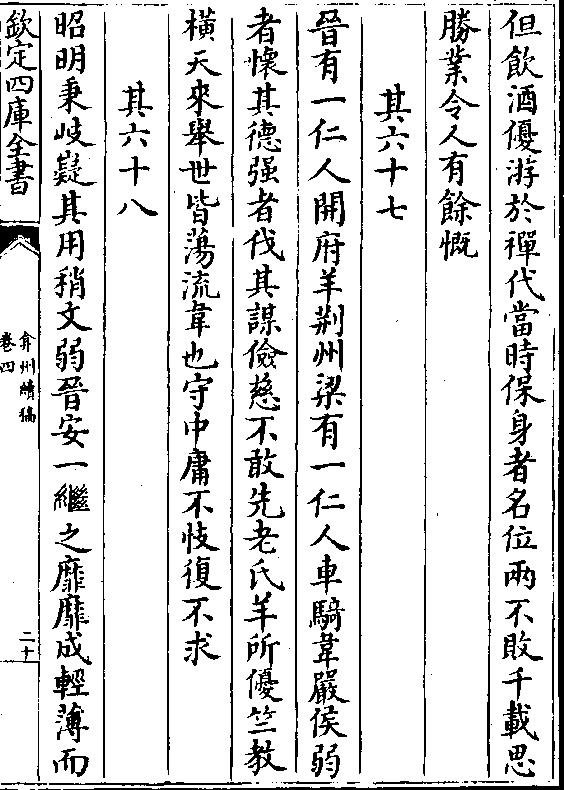 但飲酒優游於禪代當時保身者名位兩不敗千載思
勝業令人有餘慨
其六十七
晉有一仁人開府羊荆州梁有一仁人車騎韋嚴侯弱
者懷其德强者伐其謀儉慈不敢先老氏羊所優竺教
横天來舉世皆蕩流韋也守中庸不忮復不求
其六十八
昭明秉岐嶷其用稍文弱晉安一繼之靡靡成輕薄而
欽定四庫全書
弇州續稿
卷四
二十